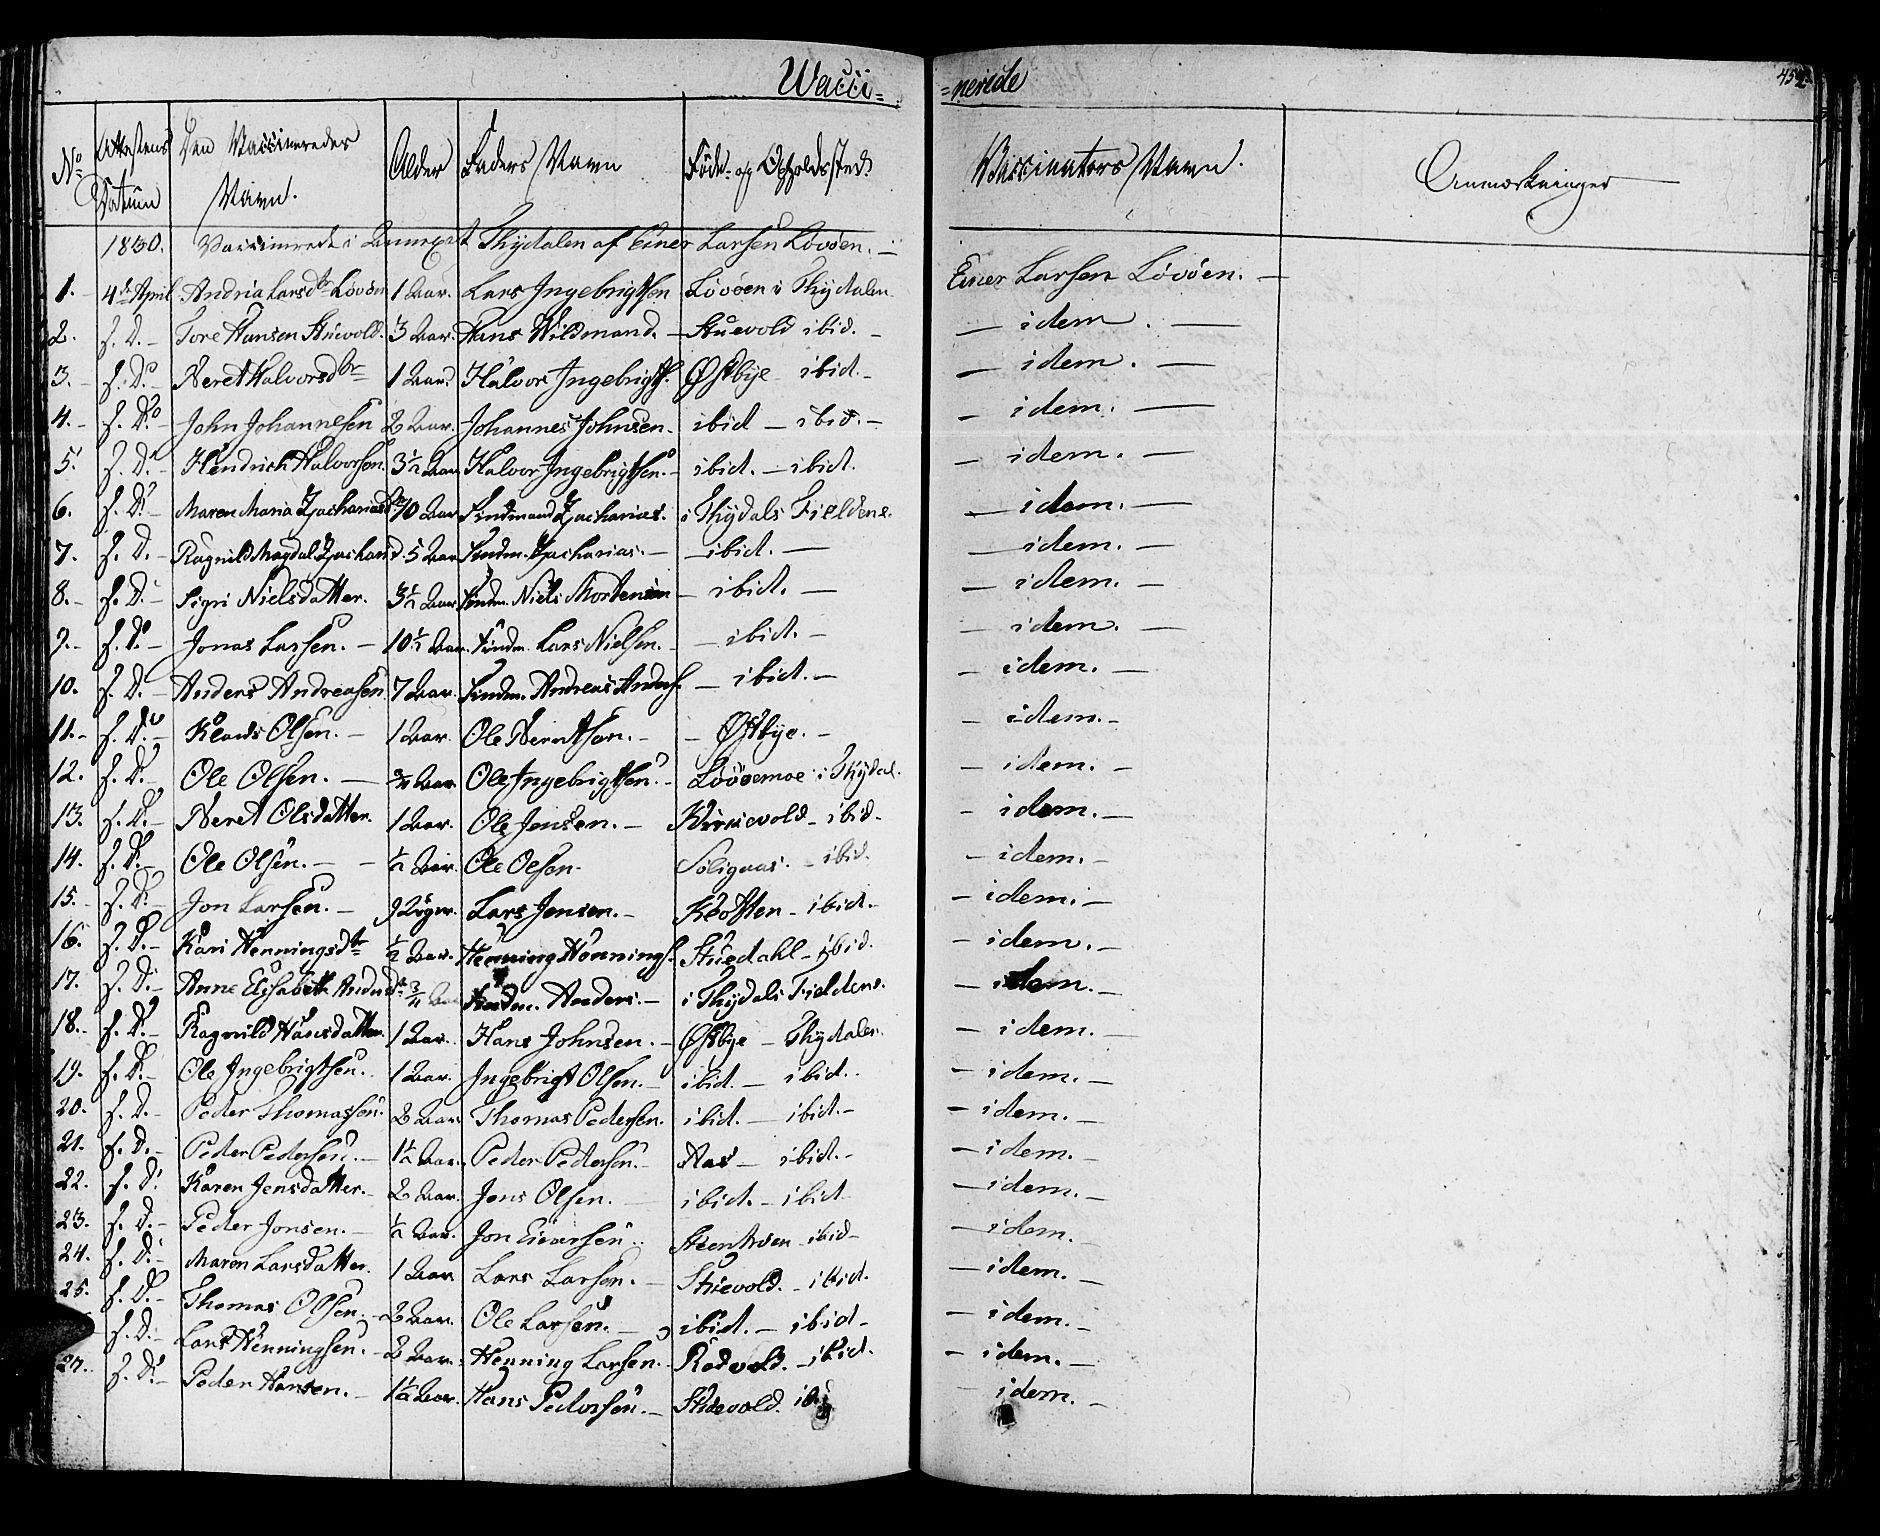 Wacci= =nerede 452
No Attestens Datum Den Vaccineredes Navn. Alder Faders Navn Føde- og Opholdssted Vaccinators Navn. Anmærkninger
1830. Vaccinerede i Annexet Thydalen af Einer Larsen Løvøen. —
1. 4de April Andria Larsdtr Løvøen 1 Aar. Lars Ingebrigtsen Løvøen i Thydalen Einer Larsen Løvøen. —
2. s. D. — Tore Hansen Stuevold. 3 Aar. Hans Wildmand. — Stuevold ibid. — — idem. —
3. — s. Do Beret Halvorsdtr 1 Aar. Halvor Ingebrigts. Østbye ibid. — — idem. —
4. — s. Do — John Johannesen 2 Aar. Johannes Johnsen. ibid — ibid. — — idem. —
5. s. D. — Hendrich Halvorsen. 3½ Aar Halvor Ingebrigtsen. — ibid. — ibid. — idem. —
6. s. D. — Maren Maria Zacharias 10 Aar Findmand Zacharias. i Thydals Fieldene. — idem. —
7. s. D. — Ragnild Magdal. Zachari 5 Aar Findm. Zacharias. — — ibid. — — idem. —
8. — s. D. — Sigri Nielsdatter. 3½ Aar Findm. Niels Mortensen — ibid. — — idem. —
9. — s. Do — Jonas Larsen. — 10½ Aar. Findm. Lars Nielsen. — ibid. — — idem. —
10. s. D. — Anders Andreasen 7 Aar. Findm. Andreas Anders. — ibid. — — idem. —
11. — s. D. — Olsen. — 1 Aar. Ole Berntsen. — — Østbye. — — idem. —
12. s. D. — Ole Olsen. — ¾ Aar. Ole Ingebrigtsen. — Løvøemoe i Thydal. — idem. —
13. s. D. — Beret Olsdatter. 1 Aar. Ole Jensen. — Kirkevold — ibid. — idem. —
14. s. D. — Ole Olsen. — ½ Aar. Ole Olsen. — ibid. — idem. —
15. s. D. — Jon Larsen. — 9 Uger. Lars Jensen. — Kløften — ibid. — — idem. —
16. s. D. — Kari Henningsdtr ½ Aar. Henning Hennings. Stuedahl — ibid. — idem. —
17. s. D. — Anne Elisabeth Andersdtr ¾ Aar Findm. Anders. — i Thydals Fieldene. — idem. —
18. — s. D. Ragnild Hansdatter. 1 Aar. Hans Johnsen. — Østbye — Thydalen. — idem. —
19. s. D. — Ole Ingebrigtsen. 1 Aar. Ingebrigt Olsen. — ibid. — ibid. — idem. —
20. s. D. — Peder Thomassen. 2 Aar Thomas Pedersen. ibid. — ibid. — — idem. —
21. s. D. — Peder Pedersen. — 1½ Aar. Peder Pedersen. — Aas — ibid. — — idem. —
22. s. D. Karen Jensdatter. — 2 Aar. Jens Olsen. ibid. — ibid — idem. —
23. s. D. — Peder Jonsen. — ½ Aar. Jon Einersen. — ibid — — idem. —
24. s. D. — Maren Larsdatter. 1 Aar Lars Larsen. — Stuevold. — ibid. — idem. —
25. s. D. — Thomas Olsen. — 2 Aar. Ole Larsen. — ibid. — ibid — — idem. —
s. D. — Lars Henningsen. — 2 Aar. Henning Larsen. Rødvold. — ibid. — idem. —
27. s. D. — Peder Hansen. — 1½ Aar. Hans Pedersen. — Stuevold. ibid — idem. —